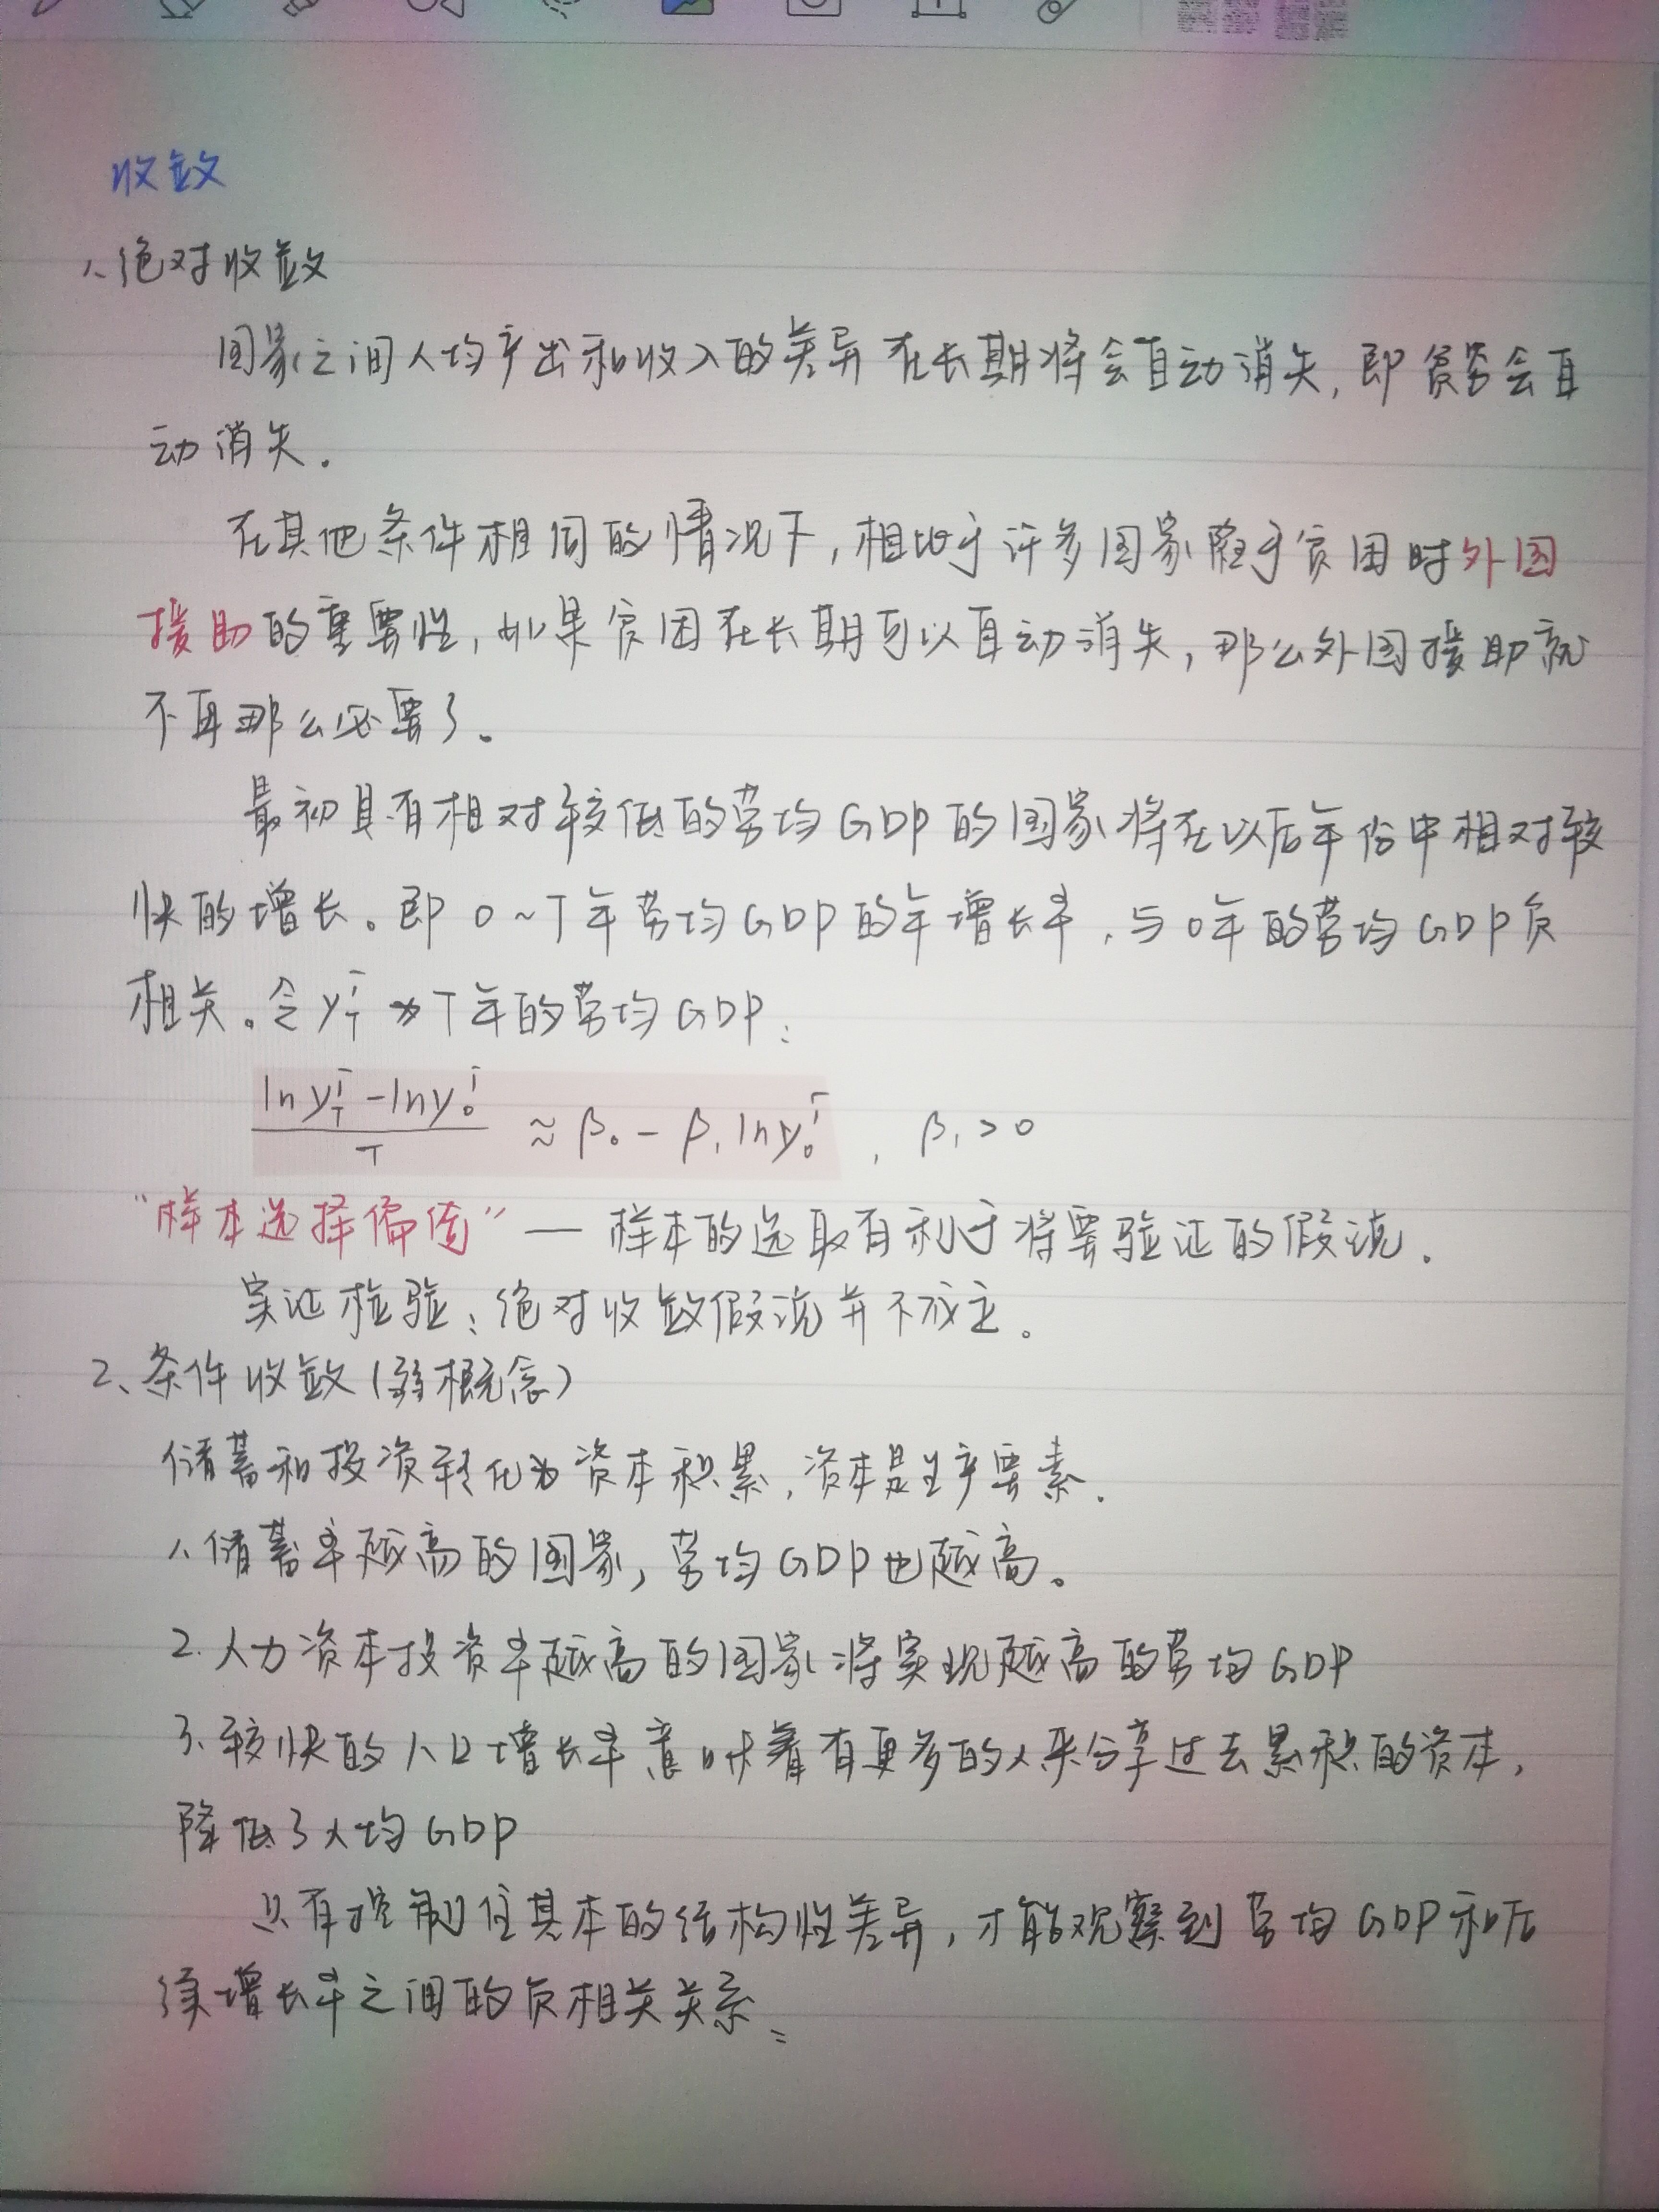 收敛
1、绝对收敛
国家之间人均产出和收入的差异在长期将会自动消失，即贫穷会自
动消失．
在其他条件相同的情况下，相比于许多国家陷于贫困时外国
援助的重要性，如果贫困在长期可以自动消失，那么外国援助就
不再那么必要了。
最初具有相对较低的劳均GDP的国家将在以后年份中相对较
快的增长。即0~T年劳均GDP的年增长率，与0年的劳均GDP负
相关。令y_T^i为T年的劳均GDP：
(ln y_T^i - ln y_0^i)/T ≈ β₀ - β₁ ln y_0^i，β₁ > 0
“样本选择偏倚”— 样本的选取有利于将要验证的假说．
实证检验：绝对收敛假说并不成立。
2、条件收敛(弱概念)
储蓄和投资转化为资本积累，资本是生产要素．
1、储蓄率越高的国家，劳均GDP也越高。
2. 人力资本投资率越高的国家将实现越高的劳均GDP
3、较快的人口增长率意味着有更多的人来分享过去累积的资本，
降低了人均GDP
只有控制住基本的结构性差异，才能观察到劳均GDP和后
续增长率之间的负相关关系。